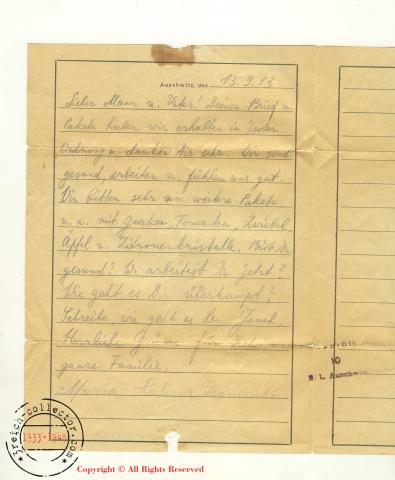 Auschwitz, den 13.9.43
Lieber Mann u. Vater! Deinen Brief u.
Pakete haben wir erhalten in
Ordnung u. danken Dir sehr. Wir sind
gesund, arbeiten u. fühlen uns gut.
Wir bitten sehr um weitere Pakete,
u. a. mit Gurken, Tomaten, Zwiebel,
Äpfl u. Zitronenkristalle. Bist Du
gesund? Wo arbeitest Du jetzt?
Wie geht es Dir überhaupt?
Schreibe wie geht es den Janek.
Herzliche Grüsse für
ganze Familie.
Maria
10
K. L. Auschwitz
3reich-collector.com
1933-1945
Copyright © All Rights Reserved